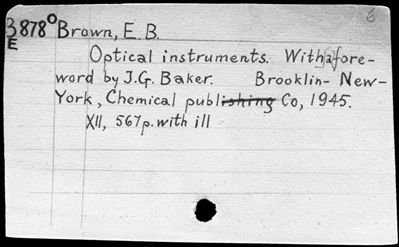 3878° Brown, E. B.
E
Optical instruments. With a fore-
word by J.G. Baker. Brooklin- New-
York, Chemical publishing Co, 1945.
XII, 567p. with ill